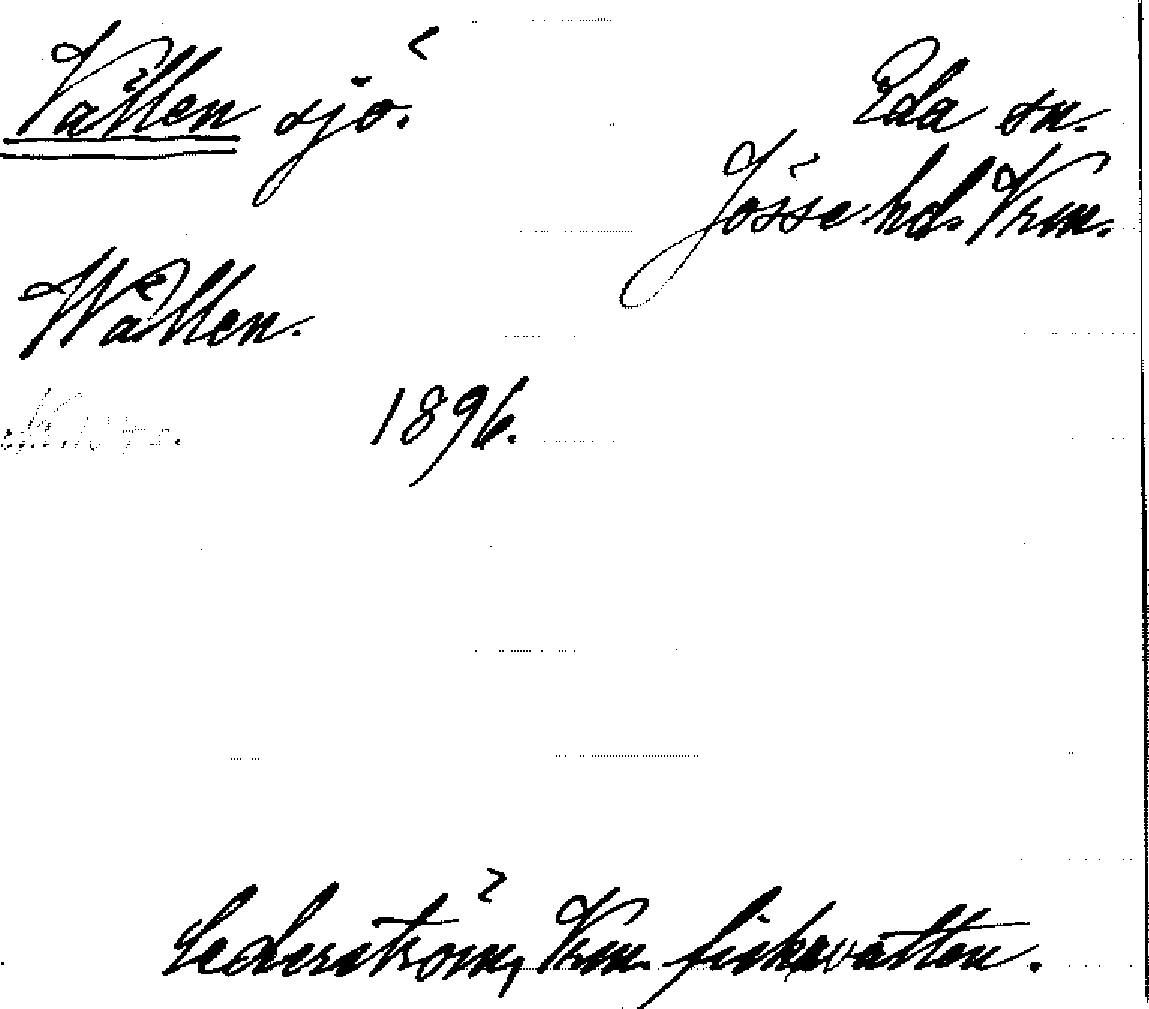 Vällen sjö.
Eda sn.
Jösse hd. Vrm.
Wällen.
1896.
Cederström, Vrm. fiskevatten.